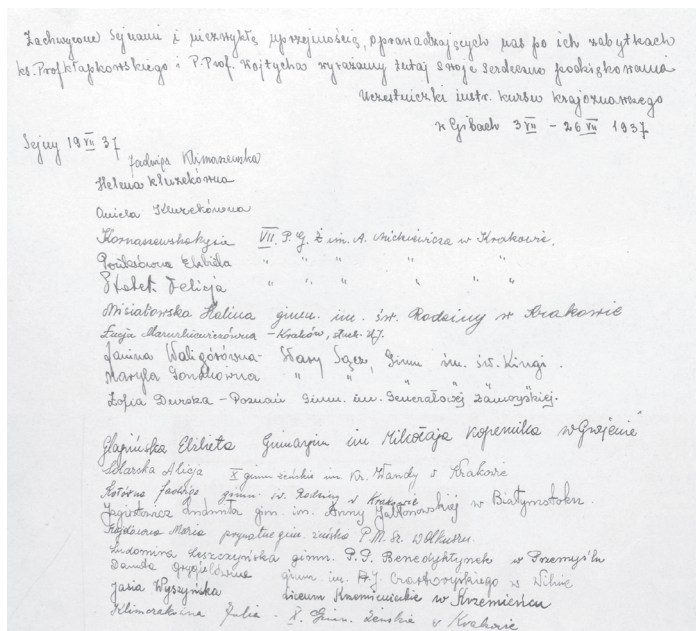 Zachwycone Sejnami i niezwykłą uprzejmością, oprowadzających nas po ich zabytkach
ks. Prof. Kłapkowskiego i P. Prof. Wojtycha wyrażamy tutaj swoje serdeczne podziękowania
Uczestniczki instr. kursu krajoznawczego
w Gibach 3 VII – 26 VII 1937
Sejny 19 VII 37
Jadwiga Klimaszewska
Helena Kluzekówna
Aniela Kluzekówna
VII. P. G. Ż im. A. Mickiewicza w Krakowie.
Elżbieta " " " " "
Felicja " " " " "
Halina gimn. im. św. Rodziny w Krakowie
Łucja – Kraków, Stud. U.J.
Janina Waligórówna – Stary Sącz, Gimn im. św. Kingi.
Maryla " " " " "
Zofia Derska – Poznań Gimn. im. Generałowej Zamoyskiej.
Glapińska Elżbieta Gimnazjum im Mikołaja Kopernika w
Alicja X gimn żeńskie im. Kr. Wandy w Krakowie
Jadwiga gimn. św. Rodziny w Krakowie
Ludmiła gim. im. Anny Jabłonowskiej w Białymstoku.
Maria prywatne gim. żeńskie P.M. w Olkuszu.
Ludomira Leszczyńska gimn. P.P. Benedyktynek w Przemyślu
Danuta gimn. im. A.J. Czartoryskiego w Wilnie
Jasia Wyszyńska Liceum Krzemienieckie w Krzemieńcu
Julia – X. Gimn. Żeńskie w Krakowie